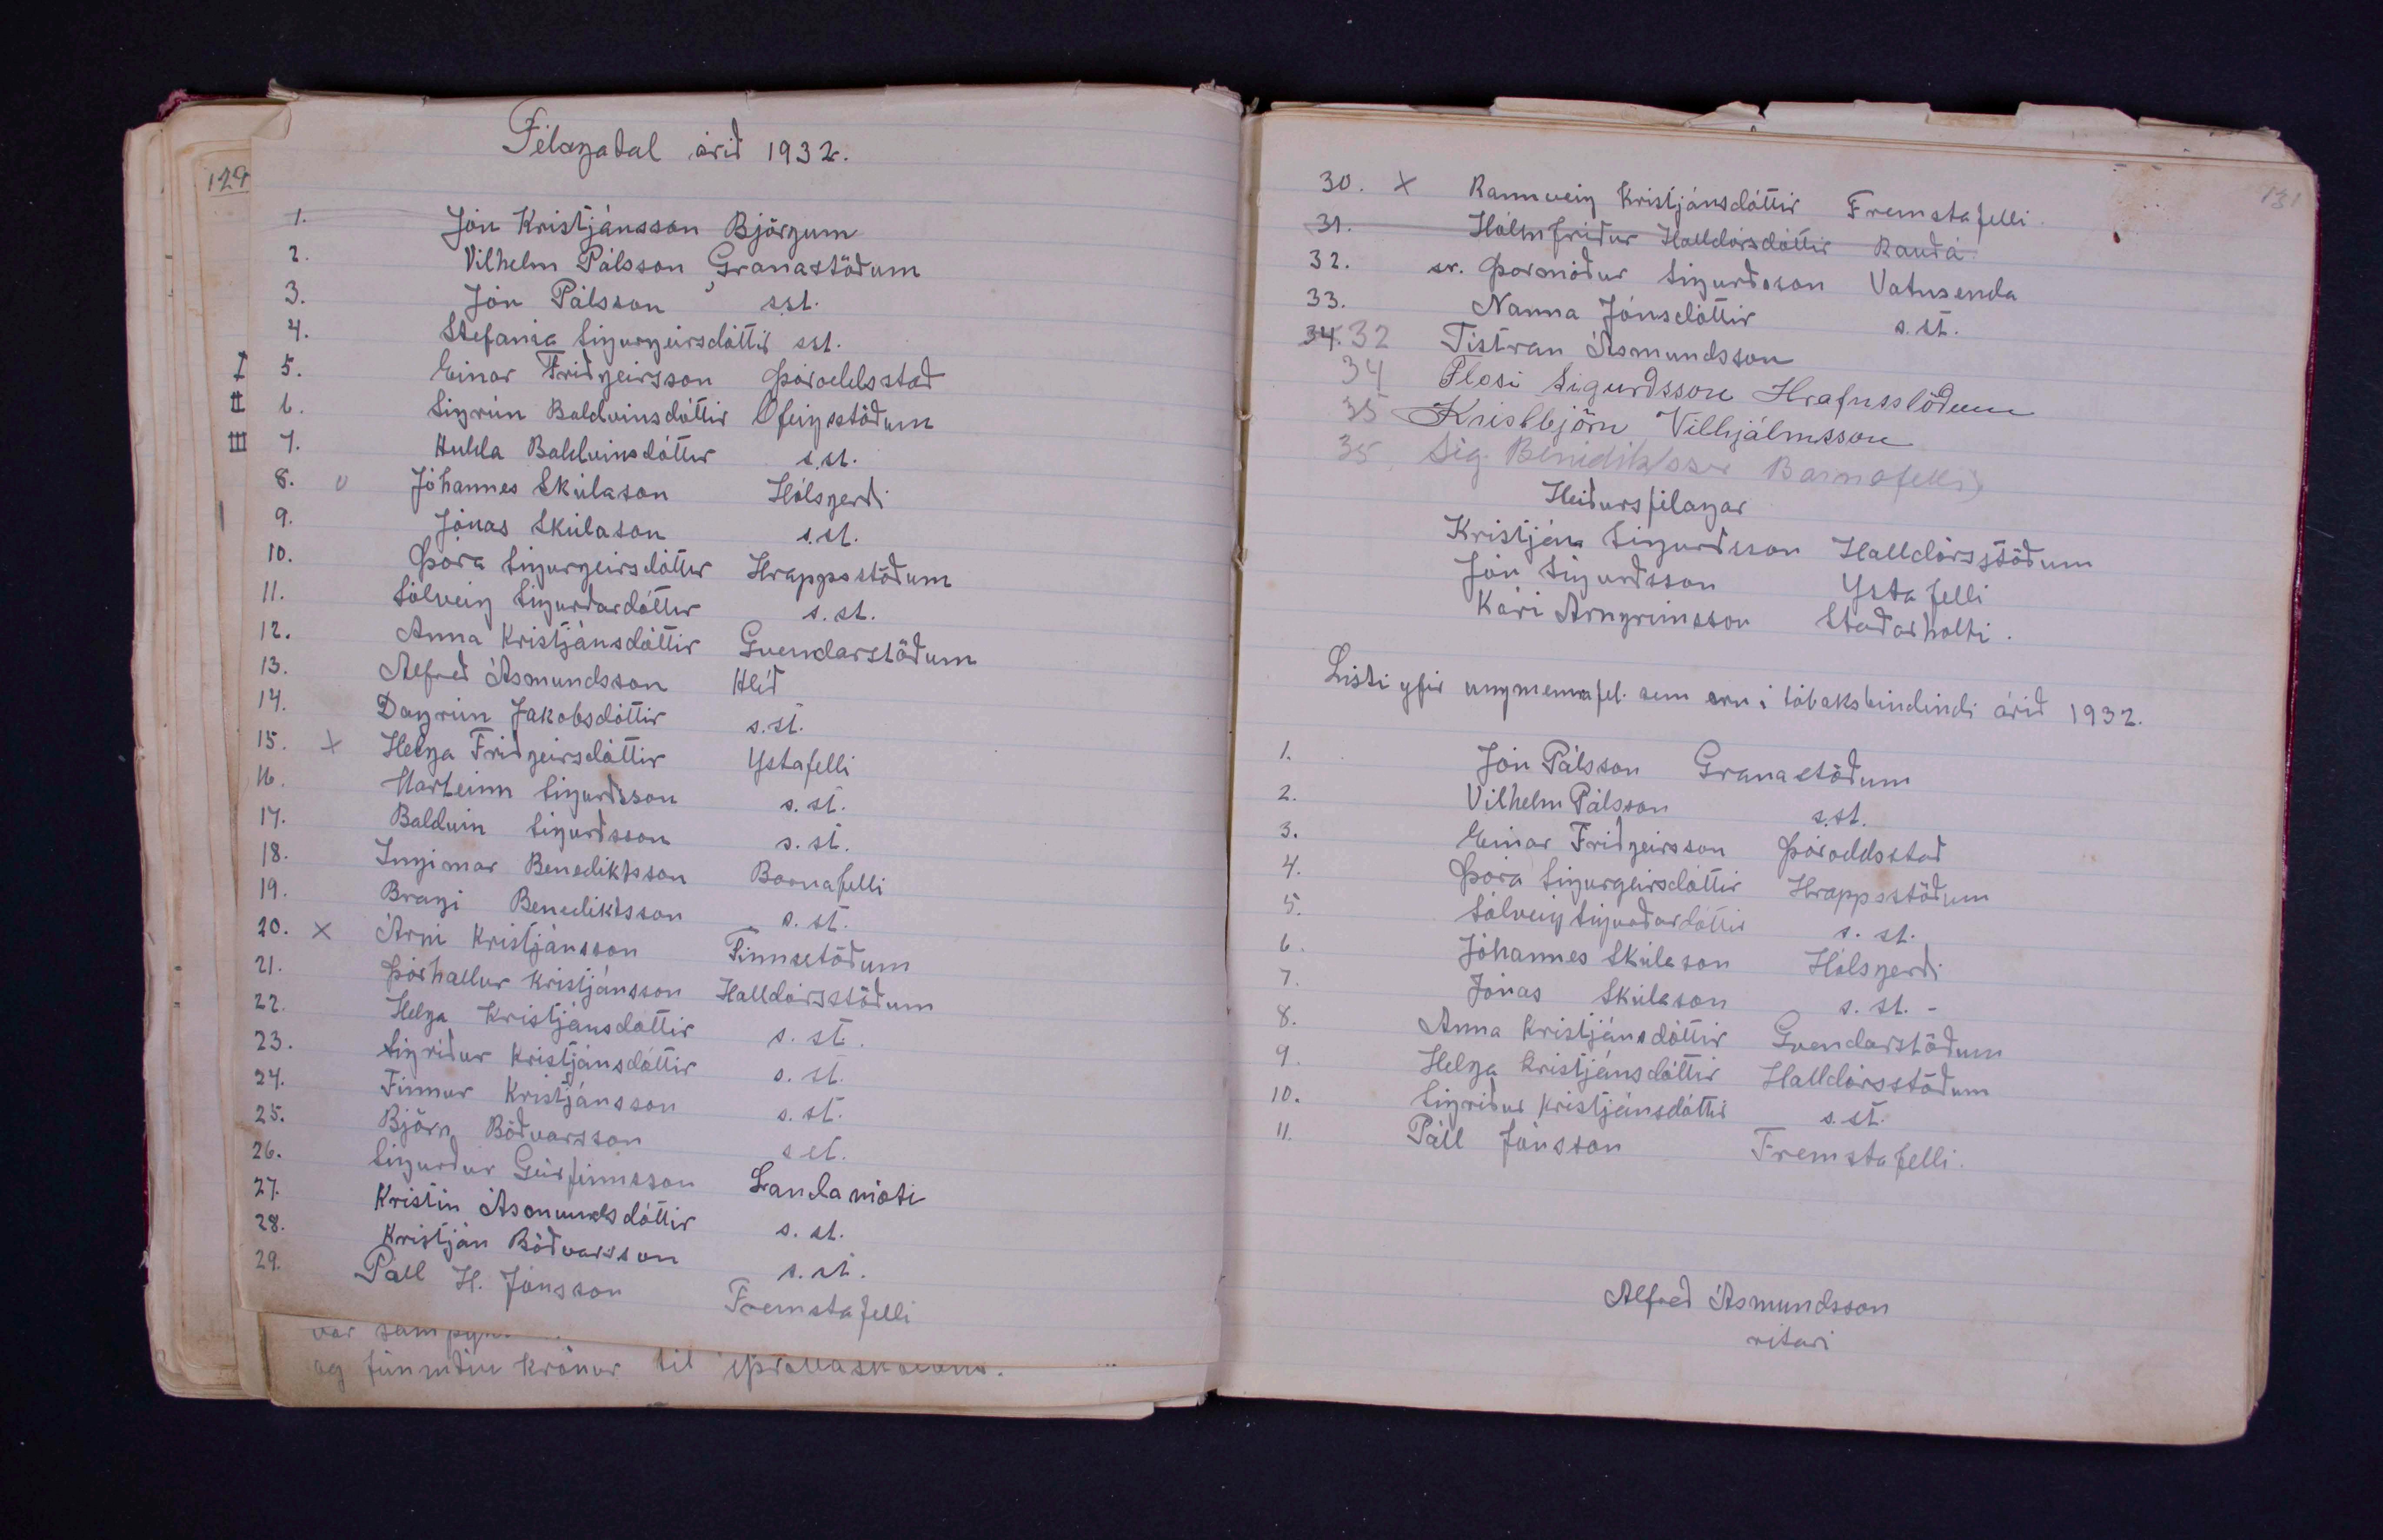 Félagatal árið 1932.
129
1. Jón Kristjánsson Björgum
2. Vilhelm Pálsson Granastöðum
3. Jón Pálsson s.st.
4. Stefanía Sigurgeirsdóttir s.st.
I 5. Einar Friðgeirsson Þóroddsstað
II 6. Sigrún Baldvinsdóttir Ófeigsstöðum
III 7. Hulda Baldvinsdóttir s.st.
8. v Jóhannes Skúlason Hólsgerði
9. Jónas Skúlason s.st.
10. Þóra Sigurgeirsdóttir Hrappsstöðum
11. Sólveig Sigurðardóttir s.st.
12. Anna Kristjánsdóttir Gvendarstöðum
13. Alfreð Ásmundsson Hlíð
14. Dagrún Jakobsdóttir s.st.
15. x Helga Friðgeirsdóttir Ystafelli
16. Marteinn Sigurðsson s.st.
17. Baldvin Sigurðsson s.st.
18. Ingimar Benediktsson Barnafelli
19. Bragi Benediktsson s.st.
20. x Árni Kristjánsson Finnsstöðum
21. Þórhallur Kristjánsson Halldórsstöðum
22. Helga Kristjánsdóttir s.st.
23. Sigríður Kristjánsdóttir s.st.
24. Finnur Kristjánsson s.st.
25. Björn Böðvarsson s.st.
26. Sigurður Geirfinnsson Landamóti
27. Kristín Ásmundsdóttir s.st.
28. Kristján Böðvarsson s.st.
29. Páll H. Jónsson Fremstafelli
og fimmtíu krónur til
131
30. x Rannveig Kristjánsdóttir Fremstafelli
31. Hólmfríður Halldórsdóttir Rauðá
32. sr. Þormóður Sigurðsson Vatnsenda
33. Nanna Jónsdóttir s.st.
34. 32 Tistran Ásmundsson
34 Flosi Sigurðsson Hrafnsstöðum
35 Kristbjörn Vilhjálmsson
35. Sig. Benidiktsson Barnafelli
Heiðursfélagar
Kristján Sigurðsson Halldórsstöðum
Jón Sigurðsson Ystafelli
Kári Arngrímsson Staðarholti.
Listi yfir ungmennafél. sem eru í tóbaksbindindi árið 1932.
1. Jón Pálsson Granastöðum
2. Vilhelm Pálsson s.st.
3. Einar Friðgeirsson Þóroddsstað
4. Þóra Sigurgeirsdóttir Hrappsstöðum
5. Sólveig Sigurðardóttir s.st.
6. Jóhannes Skúlason Hólsgerði
7. Jónas Skúlason s.st. -
8. Anna Kristjánsdóttir Gvendarstöðum
9. Helga Kristjánsdóttir Halldórsstöðum
10. Sigríður Kristjánsdóttir s.st.
11. Páll Jónsson Fremstafelli.
Alfreð Ásmundsson
ritari